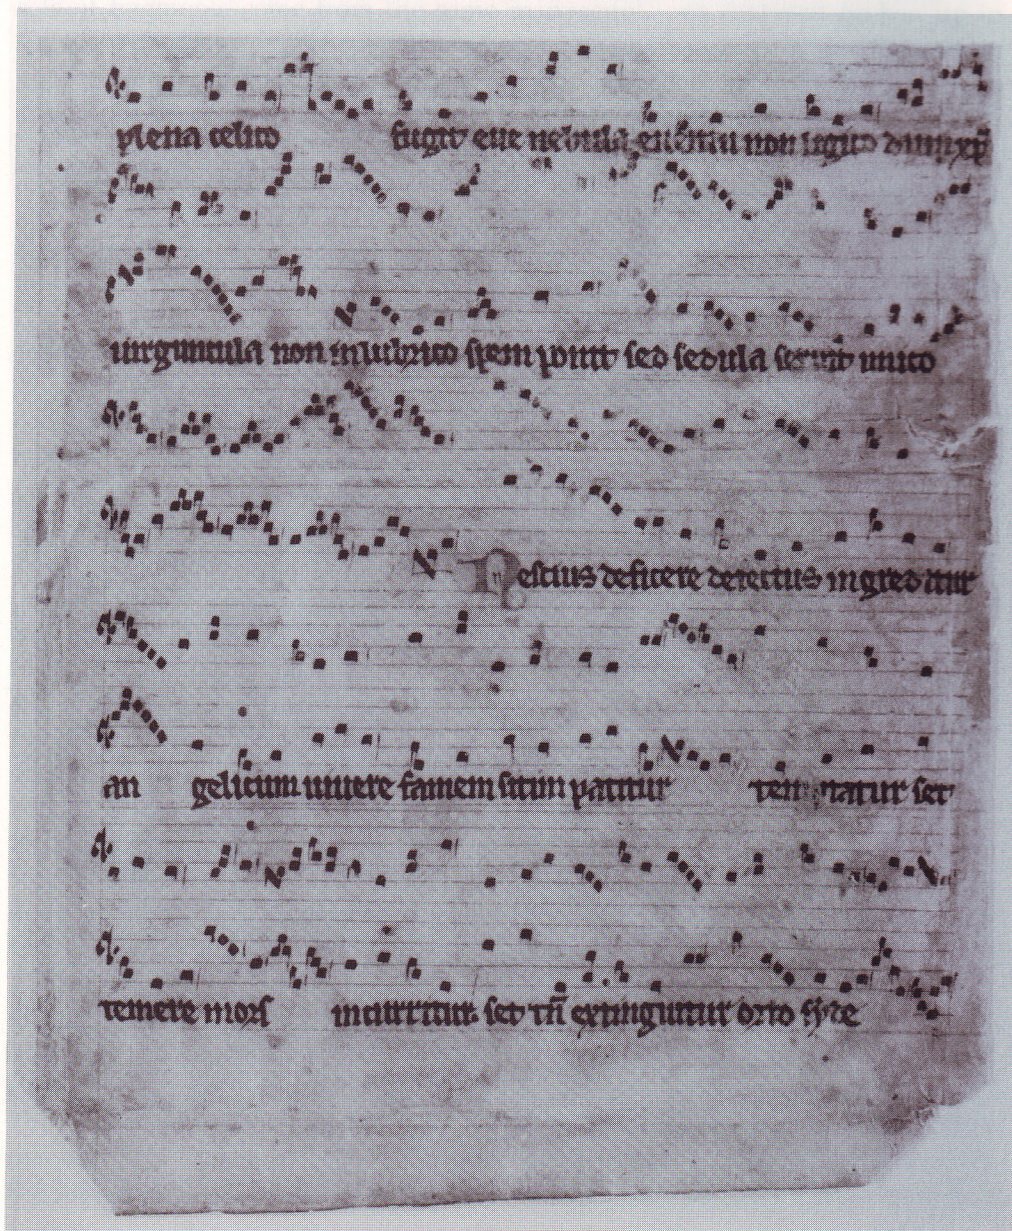 plena celico fugit eue nebula non dum xp̄i
uirguncula non in lubrico spem ponit sed sedula seruit unico
Nescius deficere detectus ingreditur
an gelicum uiuere famem sitim patitur temptatur set
temere mors incurritur set tn̄ extinguitur orto sydere